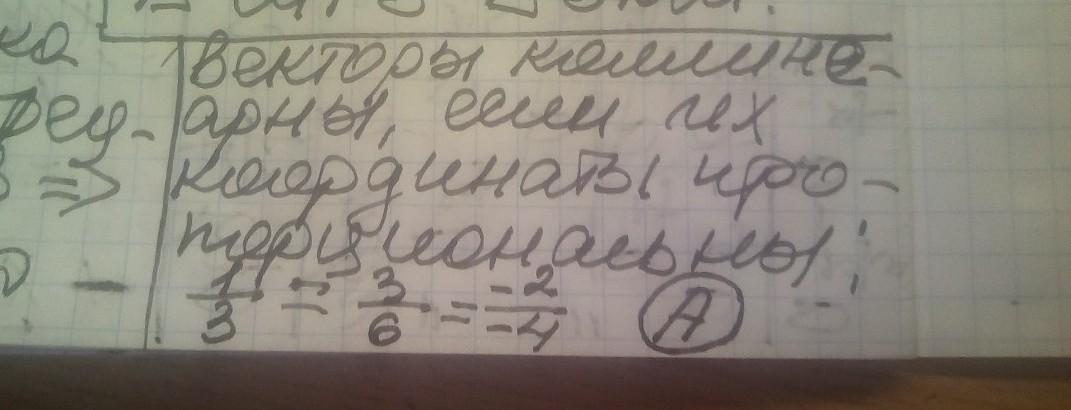 ка
векторы коллине-
реу-
арны, если их
=> координаты про-
порциональны:
1/3 = 3/6 = -2/-4 А